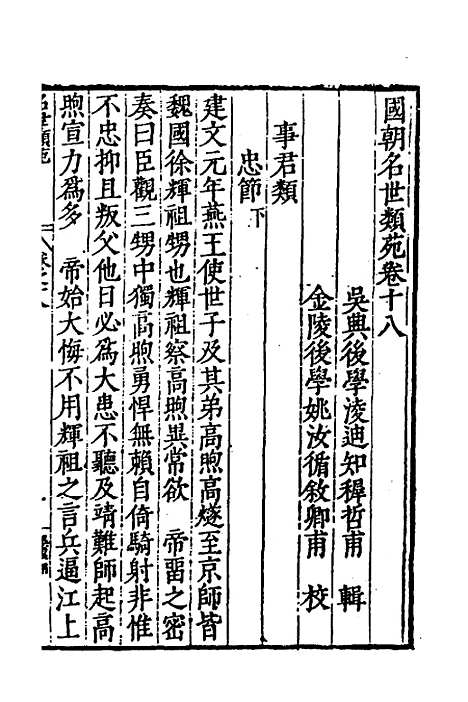 國朝名世類苑卷十八
吳興後學淩迪知穉哲甫　輯
金陵後學姚汝循敘卿甫　校
事君類
忠節下
建文元年燕王使世子及其弟高煦高燧至京師皆
魏國徐輝祖甥也輝祖察高煦異常欲　帝畱之密
奏曰臣觀三甥中獨高煦勇悍無賴自倚騎射非惟
不忠抑且叛父他日必爲大患不聽及靖難師起高
煦宣力爲多　帝始大悔不用輝祖之言兵逼江上
名世類苑
卷十八
一